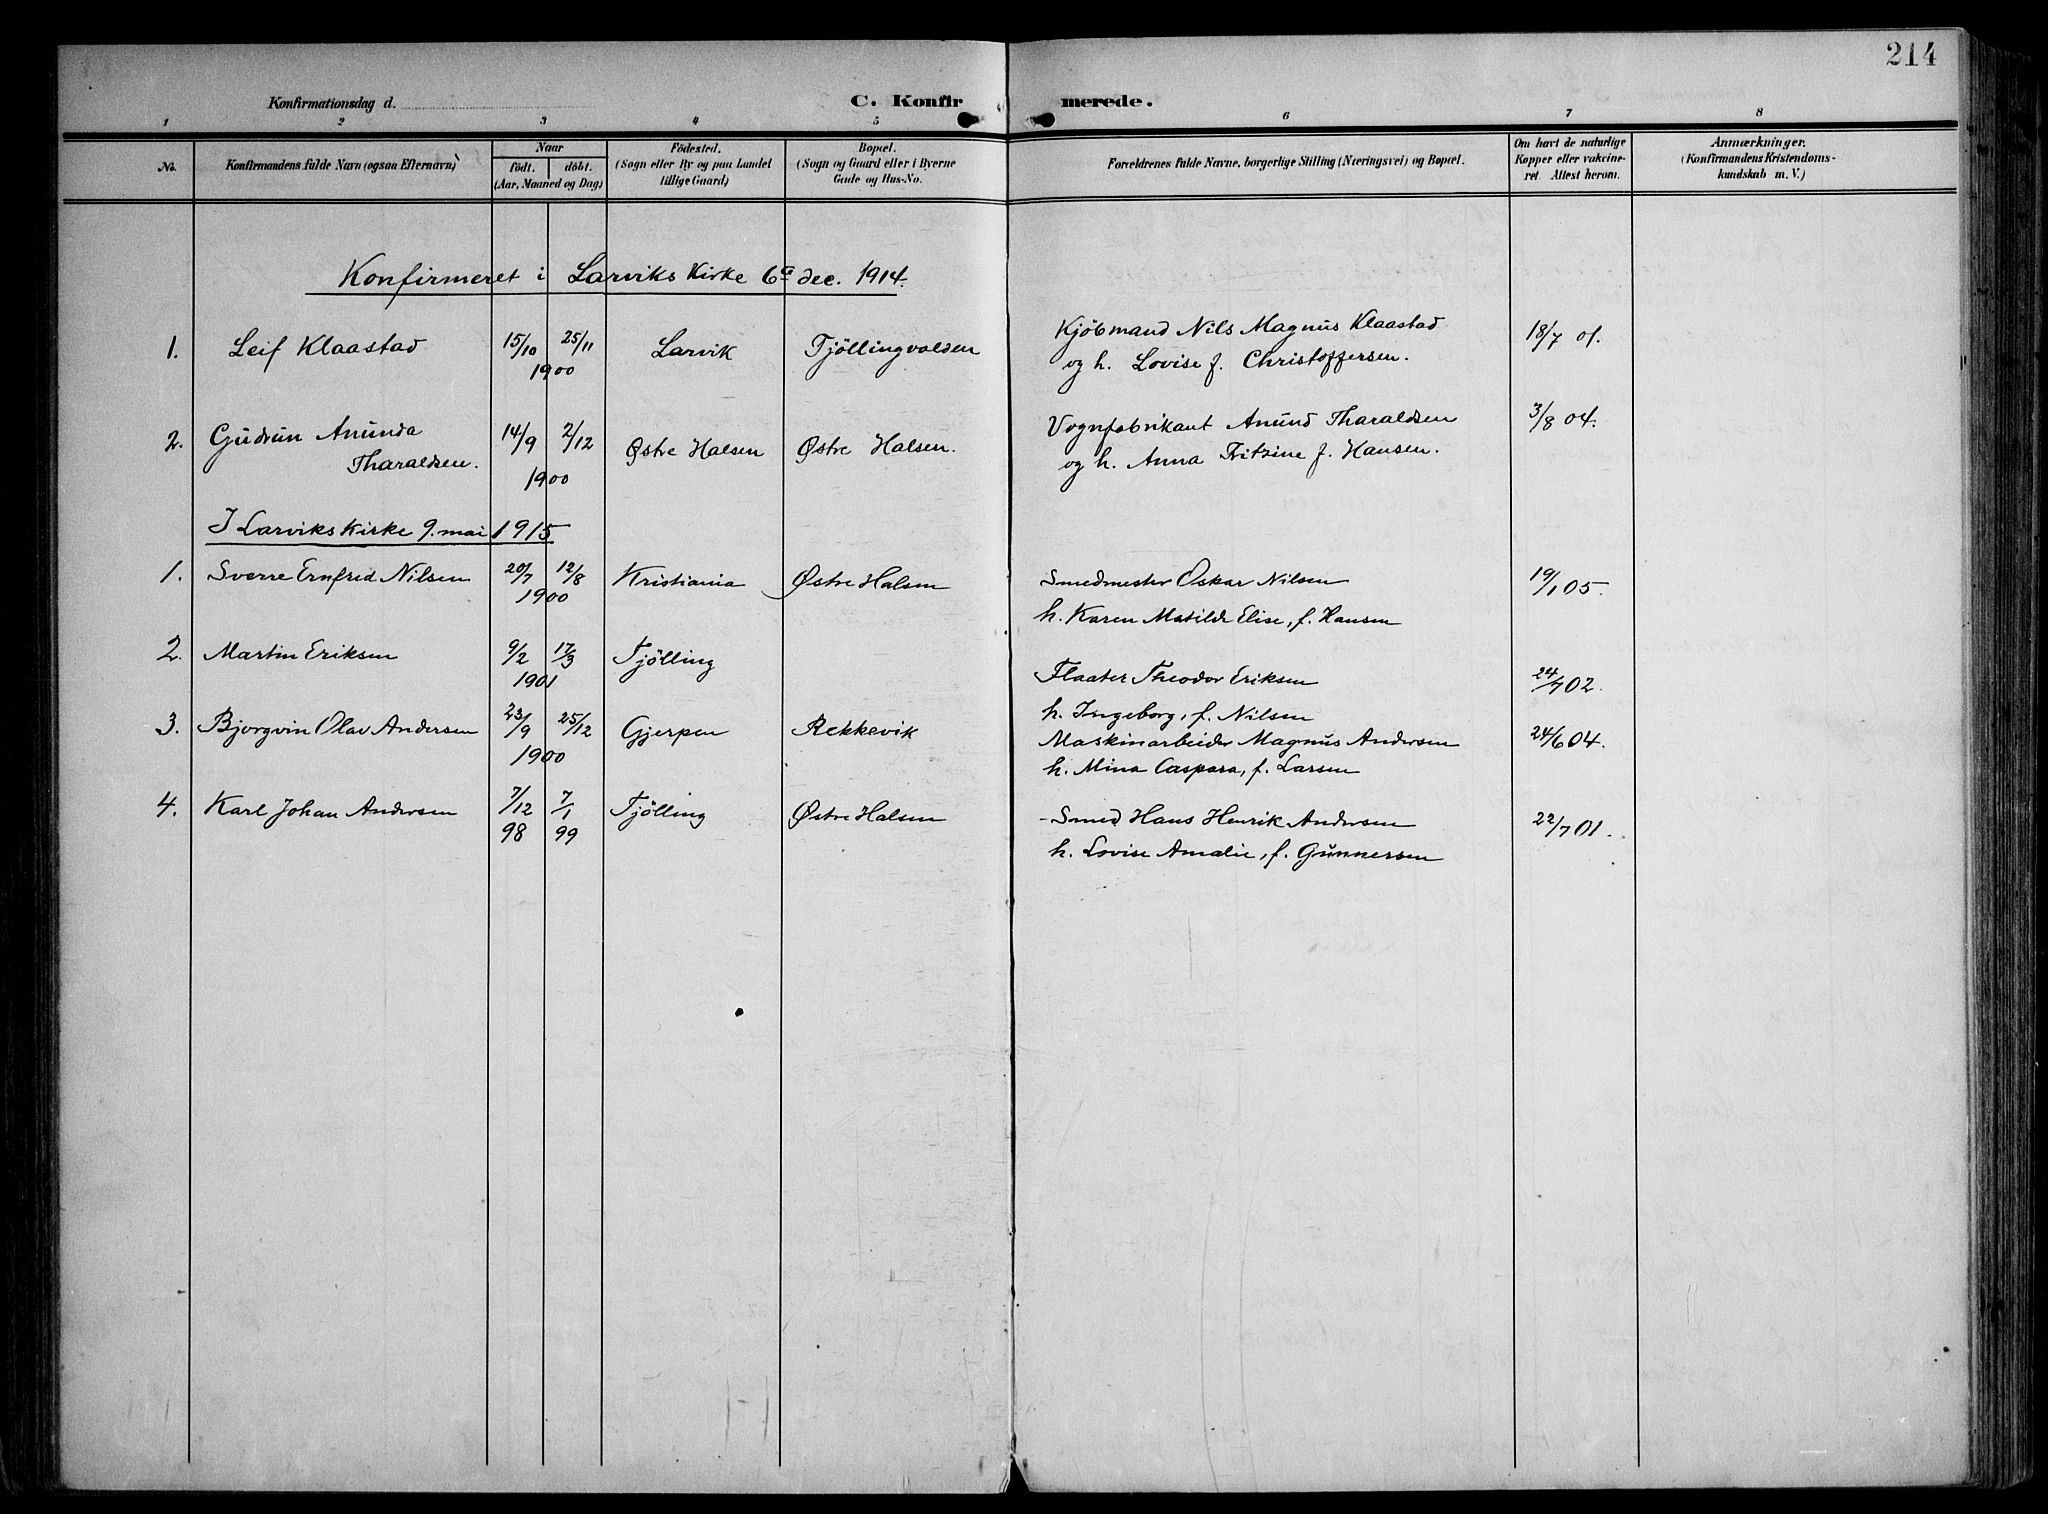 214
Konfirmationsdag d.
C. Konfirmerede.
1 2 3 4 5 6 7 8
No.
Konfirmandens fulde Navn (ogsaa Efternavn)
Naar
födt. döbt.
(Aar, Maaned og Dag)
Födested.
(Sogn eller By og paa Landet
tillige Gaard)
Bopæl.
(Sogn og Gaard eller i Byerne
Gade og Hus-No.
Forældrenes fulde Navne, borgerlige Stilling (Næringsvei) og Bopæl.
Om havt de naturlige
Kopper eller vakcine-
ret. Attest herom.
Anmærkninger,
(Konfirmandens Kristendoms-
kundskab m. V.)
Konfirmeret i Larviks Kirke 6e dec. 1914.
1. Leif Klaastad 15/10 25/11 Larvik Tjöllingvolden Kjöbmand Nils Magnus Klaastad 18/7 01.
1900 og h. Lovise f. Christoffersen.
2. Gudrun Anunda 14/9 2/12 Østre Halsen Østre Halsen. Vognfabrikant Anund Tharaldsen 3/8 04.
Tharaldsen. 1900 og h. Anna Fritzine f. Hansen.
I Larviks Kirke 9. mai 1915
1. Sverre Ernfred Nilsen 20/7 12/8 Kristiania Østre Halsen Smedmester Oskar Nilsen 19/1 05.
1900 h. Karen Matilde Elise, f. Hansen
2. Martin Eriksen 9/2 17/3 Tjölling Flaater Theodor Eriksen 24/7 02.
1901 h. Ingeborg, f. Nilsen
3. Bjorgvin Olav Andersen 23/9 25/12 Gjerpen Rekkevik Maskinarbeider Magnus Andersen 24/6 04.
1900 h. Mina Caspara, f. Larsen
4. Karl Johan Andersen 7/12 7/1 Tjölling Østre Halsen Smed Hans Henrik Andersen 22/7 01.
98 99 h. Lovise Amalie, f. Gunnersen